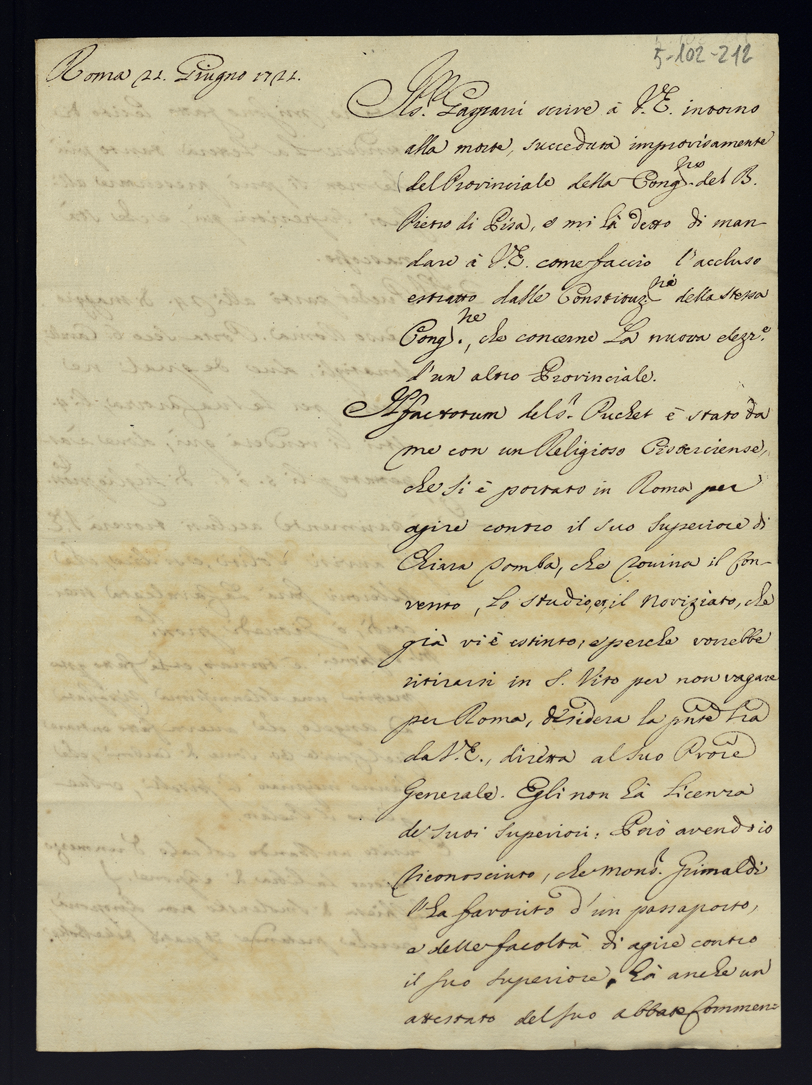 Roma 22. Giugno 1722.
5-102-212
Il S.r Gagnani scrive à V.E. intorno
alla morte, succeduta improvisamente
del Provinciale della Cong.ne del B.
Pietro di Pisa, e mi hà detto di man-
dare à V.E. come faccio l'accluso
estratto dalle Constituz.ni della stessa
Cong.ne, che concerne la nuova elezz.e
d'un altro Provinciale.
Il factotum del S.r Puchet è stato da
me con un Religioso Cisterciense,
che si è portato in Roma per
agire contro il suo Superiore di
Chiara Comba, che rovina il Con-
vento, lo studio, et il Noviziato, che
già vi è estinto; e perche vorrebbe
ritirarsi in S. Vito per non vagare
per Roma, desidera la pnte Lra
da V.E., diretta al suo Procre
Generale. Egli non hà licenza
de' suoi Superiori; Però avendo io
riconosciuto, che mons.r Grimaldi
l'hà favorito d'un passaporto,
e delle facoltà di agire contro
il suo superiore, hà anche un
attestato del suo abbate Commen=